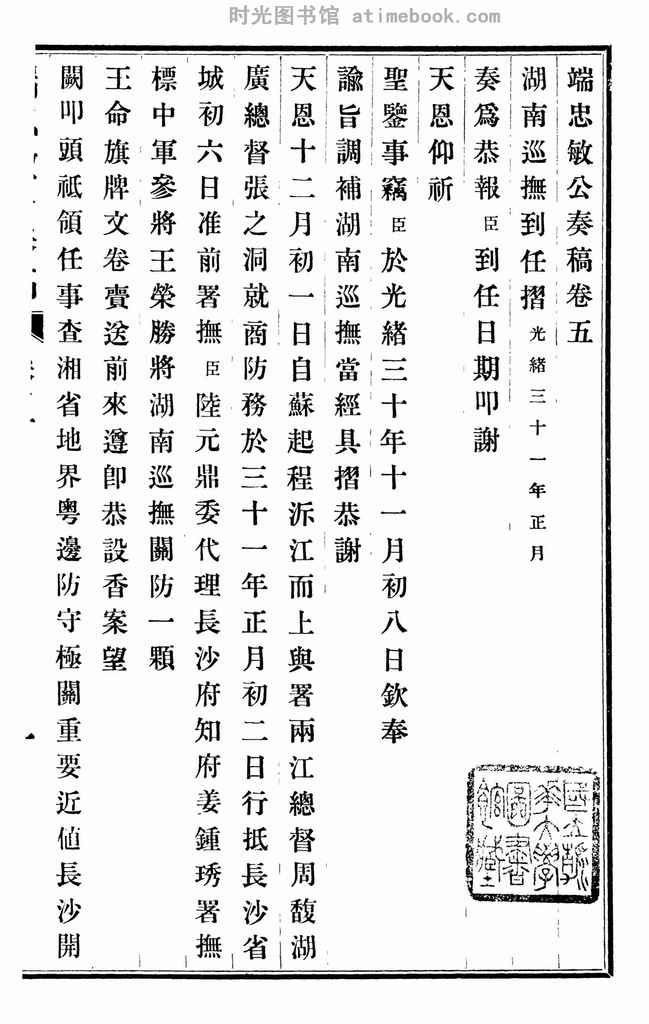 时光图书馆 atimebook.com
端忠敏公奏稿卷五
湖南巡撫到任摺 光緒三十一年正月
奏爲恭報臣到任日期叩謝
天恩仰祈
聖鑒事竊臣於光緒三十年十一月初八日欽奉
諭旨調補湖南巡撫當經具摺恭謝
天恩十二月初一日自蘇起程泝江而上與署兩江總督周馥湖
廣總督張之洞就商防務於三十一年正月初二日行抵長沙省
城初六日准前署撫臣陸元鼎委代理長沙府知府姜鍾琇署撫
標中軍參將王榮勝將湖南巡撫關防一顆
王命旗牌文卷賫送前來遵卽恭設香案望
闕叩頭祗領任事查湘省地界粤邊防守極關重要近値長沙開